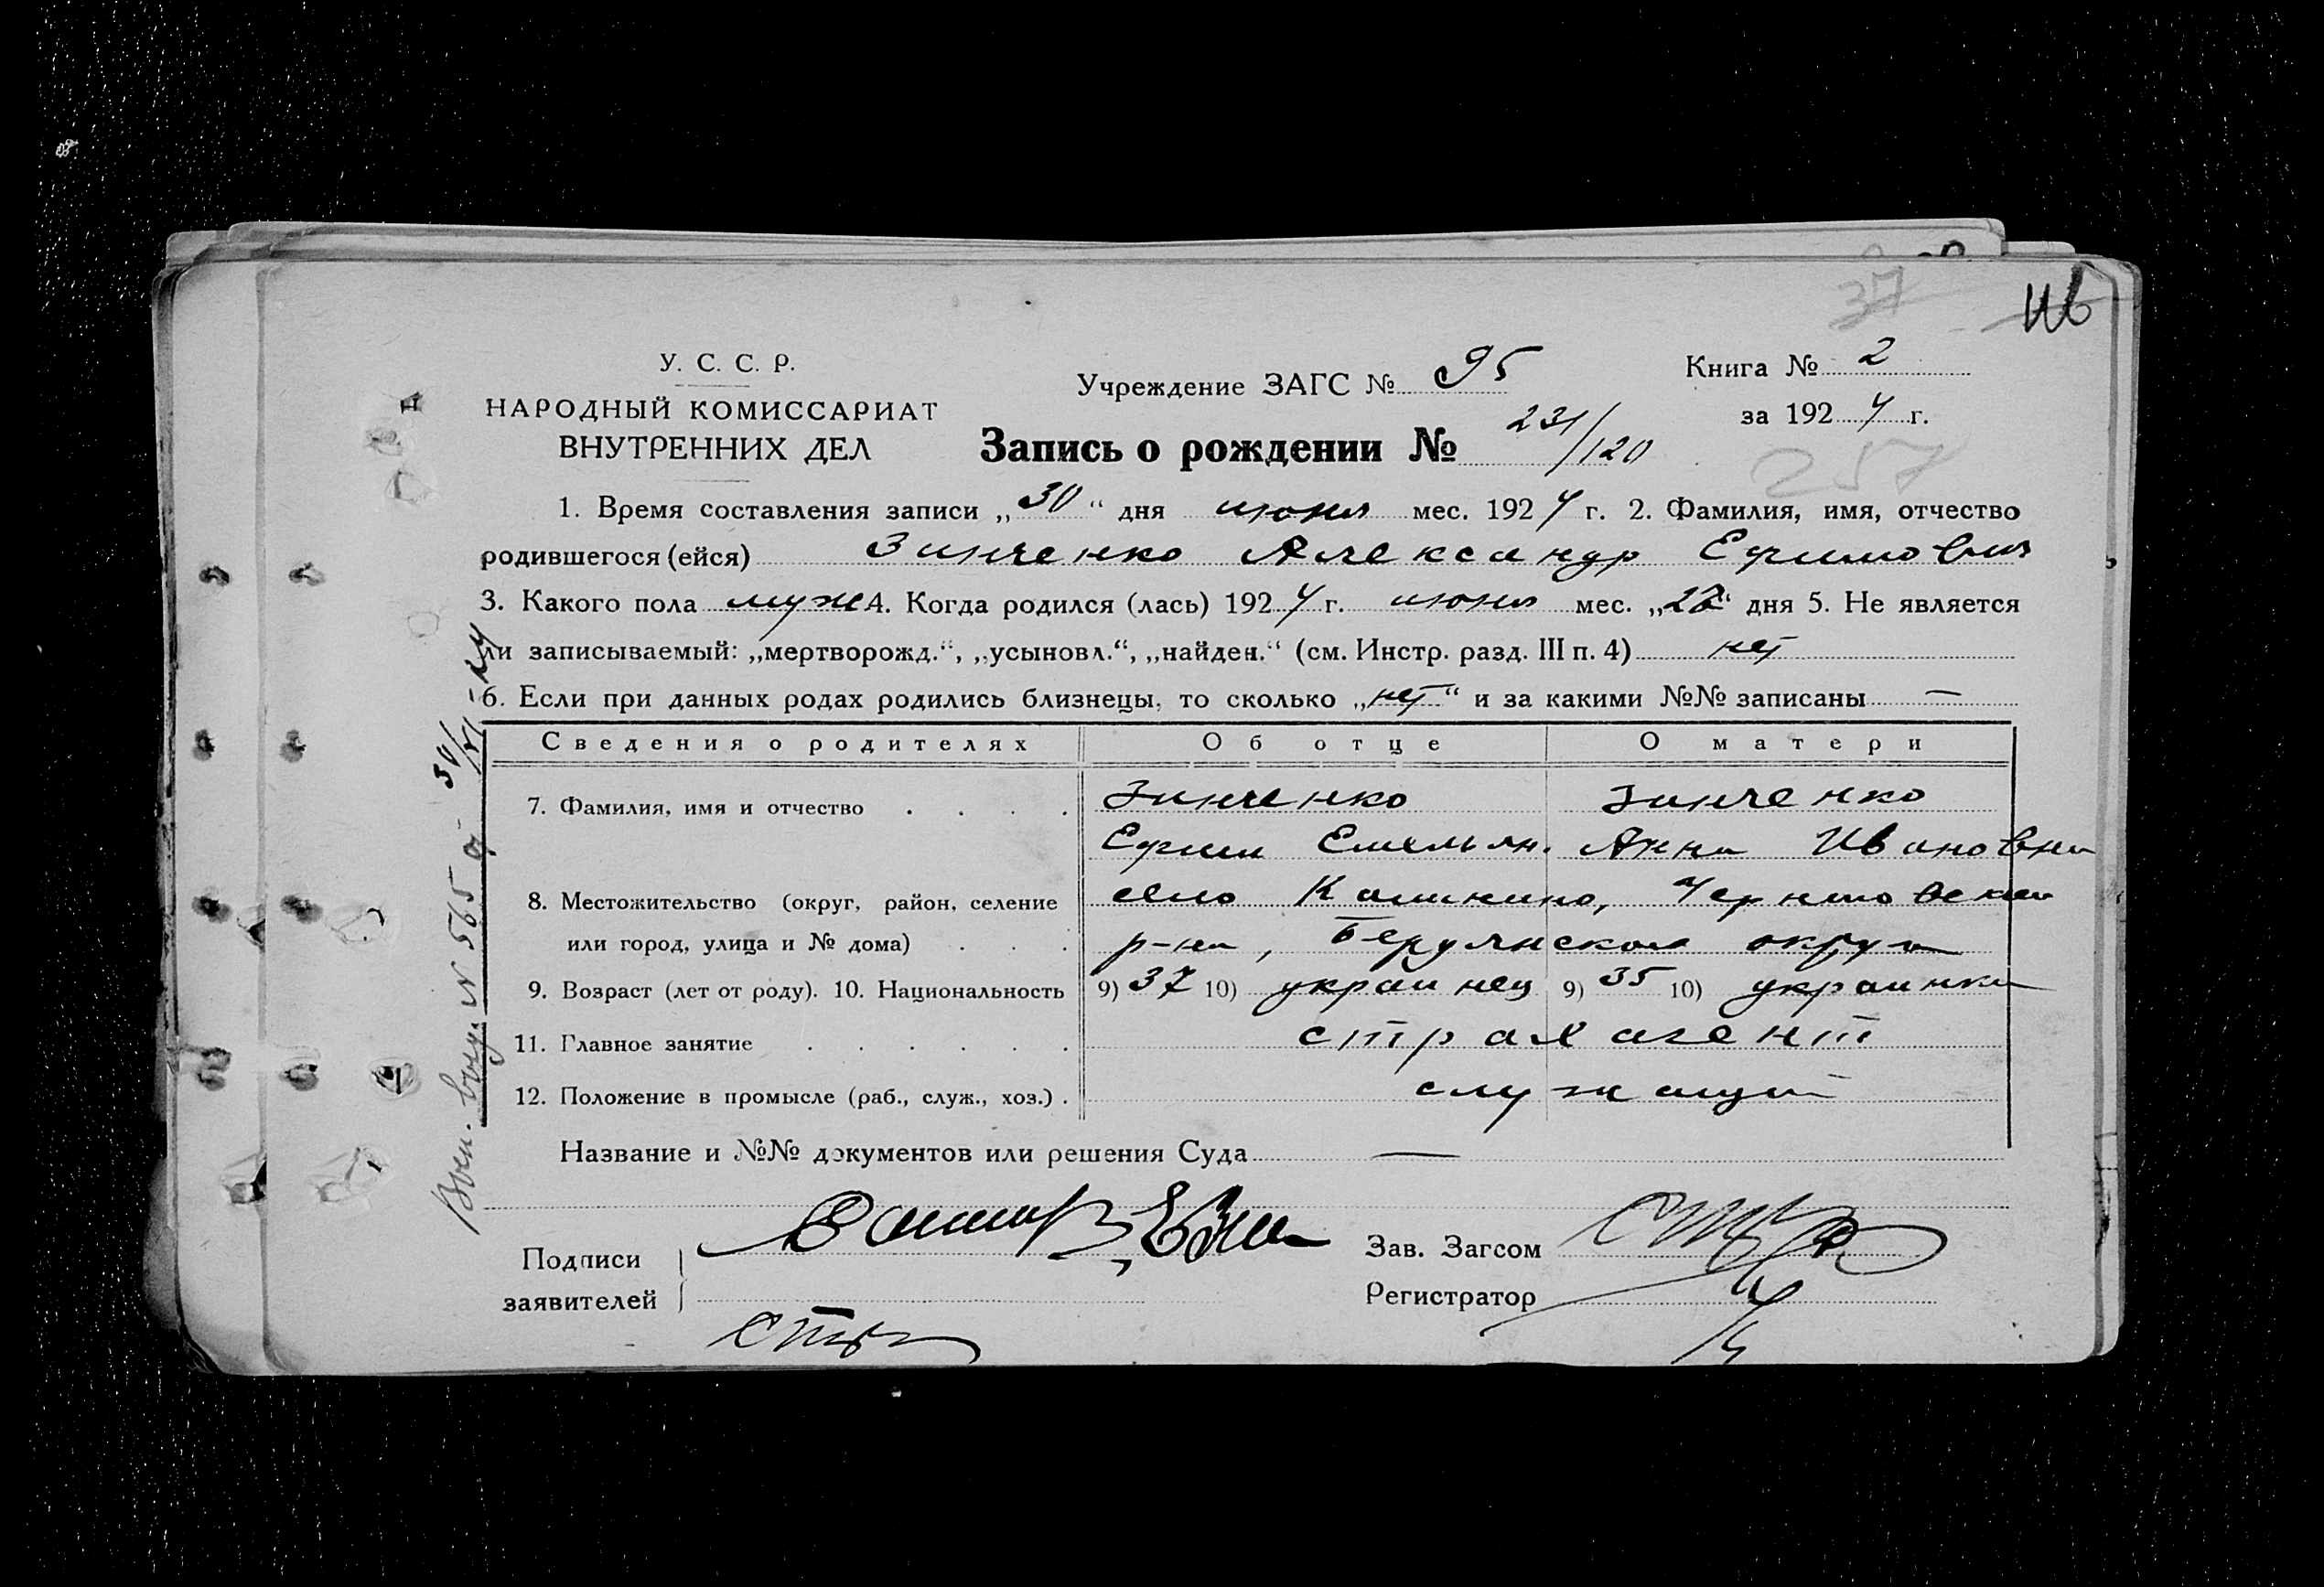 37
У. С. С. Р.
НАРОДНЫЙ КОМИССАРИАТ
ВНУТРЕННИХ ДЕЛ
Учреждение ЗАГС № 95
Книга № 2
за 1924 г.
Запись о рождении № 231/120
257
1. Время составления записи „30“ дня июня мес. 1924 г. 2. Фамилия, имя, отчество
родившегося (ейся) Зинченко Александр Ефимович
3. Какого пола муж 4. Когда родился (лась) 1924 г. июня мес. „22“ дня 5. Не является
ли записываемый: „мертворожд.“, „усыновл.“, „найден.“ (см. Инстр. разд. III п. 4) нет
6. Если при данных родах родились близнецы, то сколько „нет“ и за какими №№ записаны —
Сведения о родителях Об отце О матери
7. Фамилия, имя и отчество . . . . Зинченко Зинченко
Ефим Емельян. Анна Ивановна
8. Местожительство (округ, район, селение село Черниговского
или город, улица и № дома) . . . р-на, Бердянского округа
9. Возраст (лет от роду). 10. Национальность 9) 37 10) украинец 9) 35 10) украинка
11. Главное занятие . . . . . . страхагент
12. Положение в промысле (раб., служ., хоз.) . служащий
Название и №№ документов или решения Суда —
Подписи
заявителей
Зав. Загсом
Регистратор
N 565 от 30/VI-24